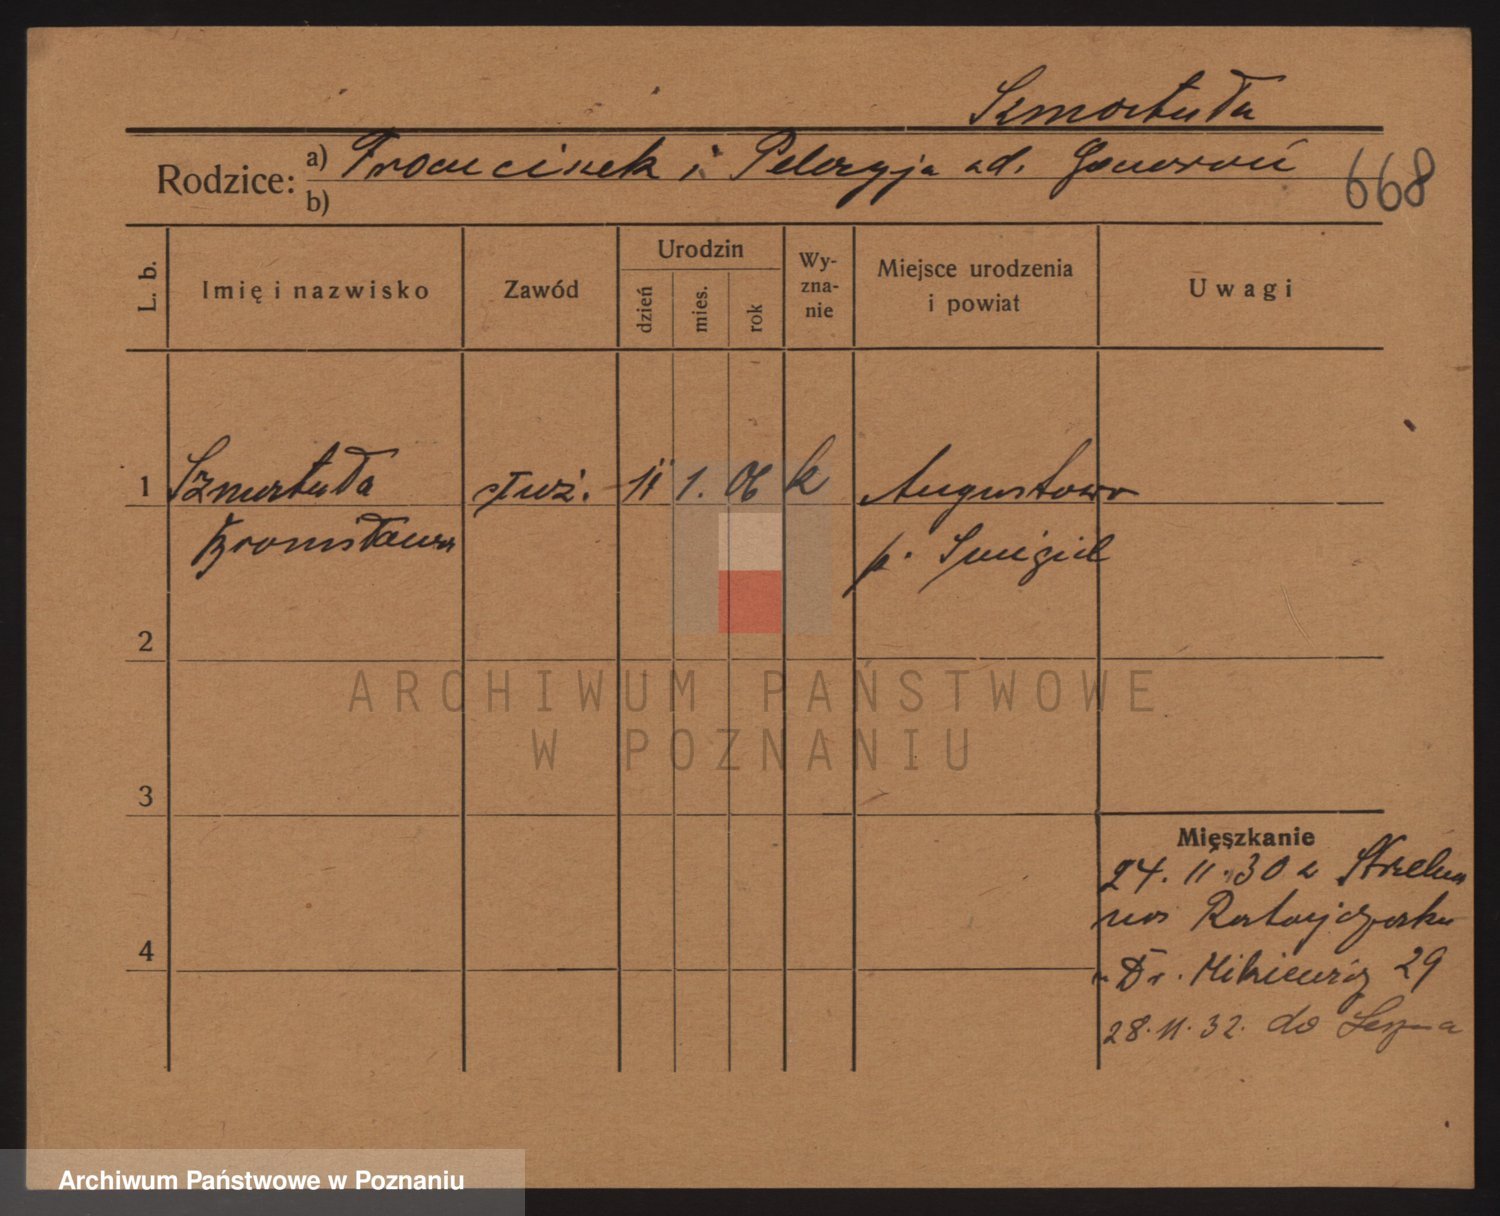 Szmortuła
Rodzice: a) Franciszek i Pelagja
668
b)
L. b.
Imię i nazwisko
Zawód
Urodzin
dzień
mies.
rok
Wy-
zna-
nie
Miejsce urodzenia
i powiat
Uwagi
1 Szmortuła służ. 11 1. 06 k Augustowo
Bronisława p. Śmigiel
2
ARCHIWUM PAŃSTWOWE
W POZNANIU
3
Mieszkanie
24. 11. 30 z
Ratajczaka
4
Dr. 29
28. 11. 32. do Leszna
Archiwum Państwowe w Poznaniu